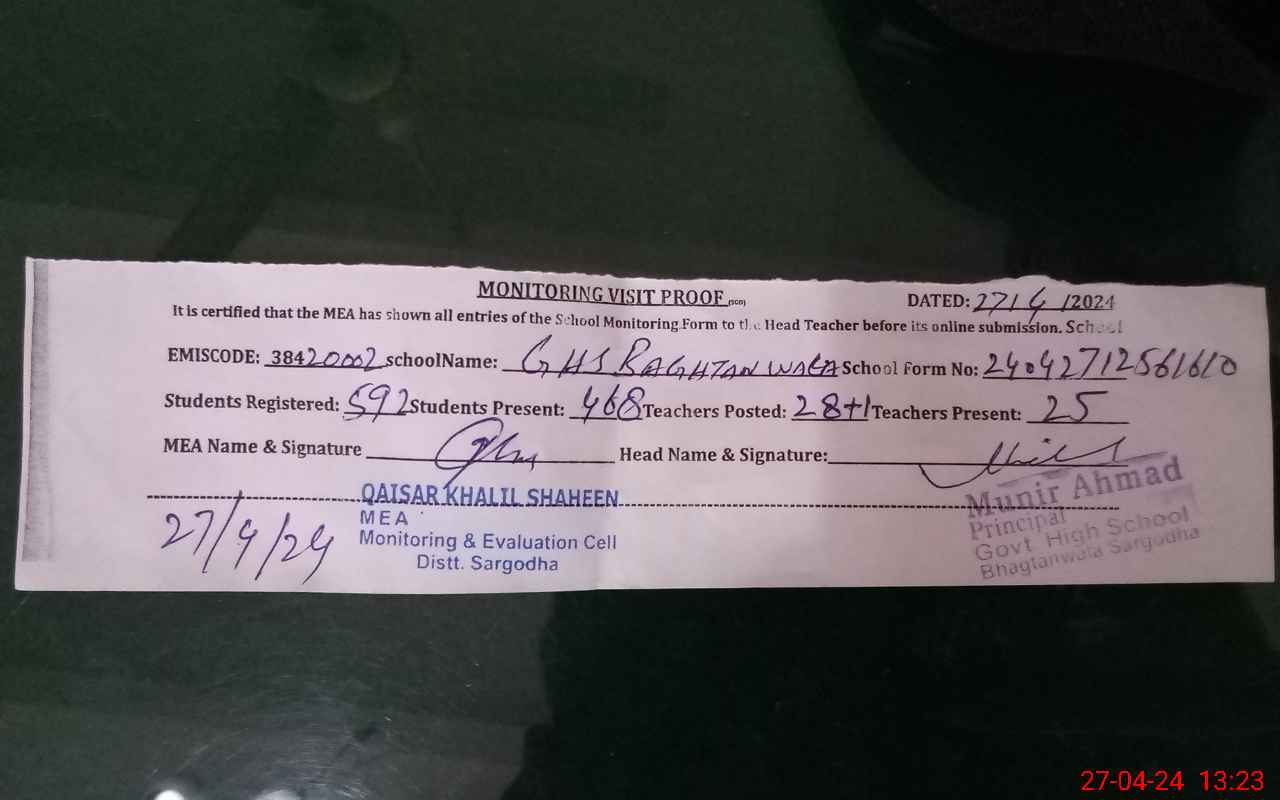 MONITORING VISIT PROOF DATED: 27/4/2024
It is certified that the MEA has shown all entries of the School Monitoring Form to the Head Teacher before its online submission. School
EMISCODE: 38420002 schoolName: GHS BAGHTANWALA School Form No: 24042712561610
Students Registered: 592 Students Present: 468 Teachers Posted: 28+1 Teachers Present: 25
MEA Name & Signature Head Name & Signature:
QAISAR KHALIL SHAHEEN
MEA
Monitoring & Evaluation Cell
Distt. Sargodha
27/4/24
Munir Ahmad
Principal
Govt High School
Bhagtanwala Sargodha
27-04-24 13:23